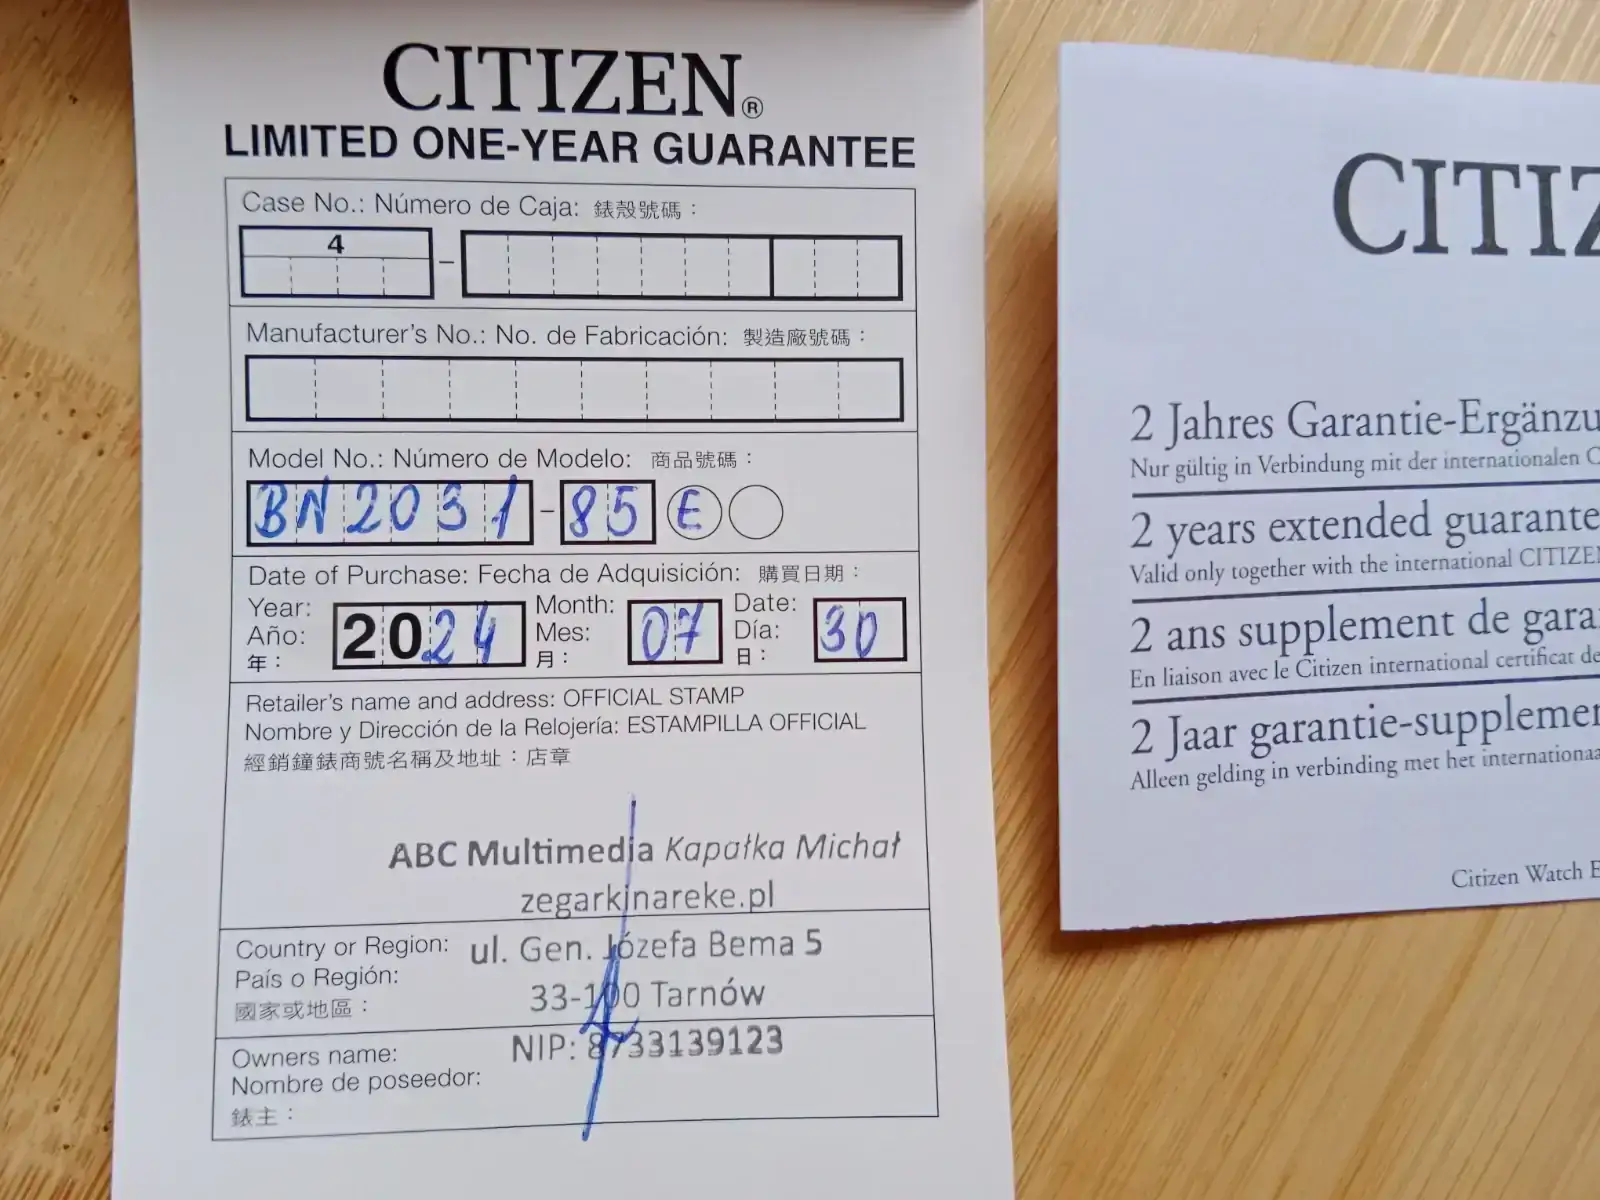 CITIZEN®
LIMITED ONE-YEAR GUARANTEE
Case No.: Número de Caja: 錶殼號碼：
4
-
Manufacturer's No.: No. de Fabricación: 製造廠號碼：
Model No.: Número de Modelo: 商品號碼：
BN2031-85 E
Date of Purchase: Fecha de Adquisición: 購買日期：
Year: Año: 年： 2024 Month: Mes: 月： 07 Date: Día: 日： 30
Retailer's name and address: OFFICIAL STAMP
Nombre y Dirección de la Relojería: ESTAMPILLA OFFICIAL
經銷鐘錶商號名稱及地址：店章
ABC Multimedia Kapałka Michał
zegarkinareke.pl
ul. Gen. Józefa Bema 5
33-100 Tarnów
NIP: 8733139123
Country or Region:
País o Región:
國家或地區：
Owners name:
Nombre de poseedor:
錶主：
CITIZ
2 Jahres Garantie-Ergänzu
Nur gültig in Verbindung mit der internationalen C
2 years extended guarante
Valid only together with the international CITIZE
2 ans supplement de gara
En liaison avec le Citizen international certificat de
2 Jaar garantie-supplemen
Alleen gelding in verbinding met het internationaa
Citizen Watch E